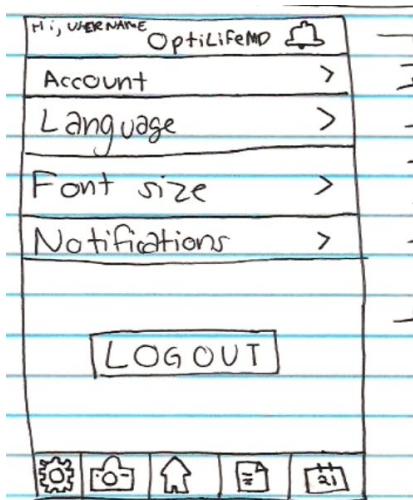 Hi, USERNAME
OptiLifeMD
Account >
Language >
Font size >
Notifications >
LOGOUT
21